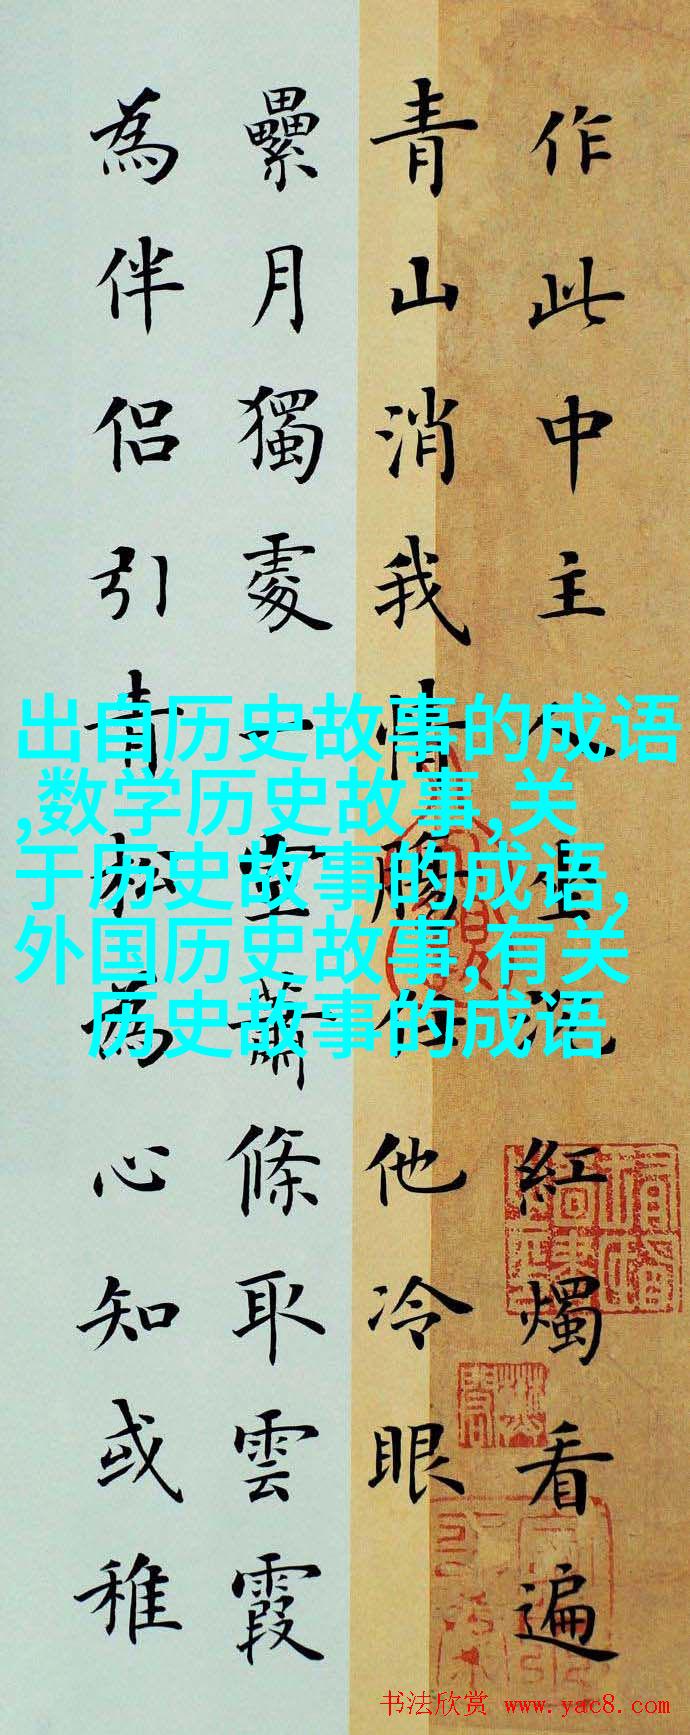 作此中主人況紅燭看遍
青山消我情腸任他冷眼
纍月獨處一室蕭條取雲霞
為伴侶引青松為心知或稚
出自历史故事的成语
,数学历史故事,关
于历史故事的成语,
外国历史故事,有关
历史故事的成语
书法欣赏 www.yac8.com